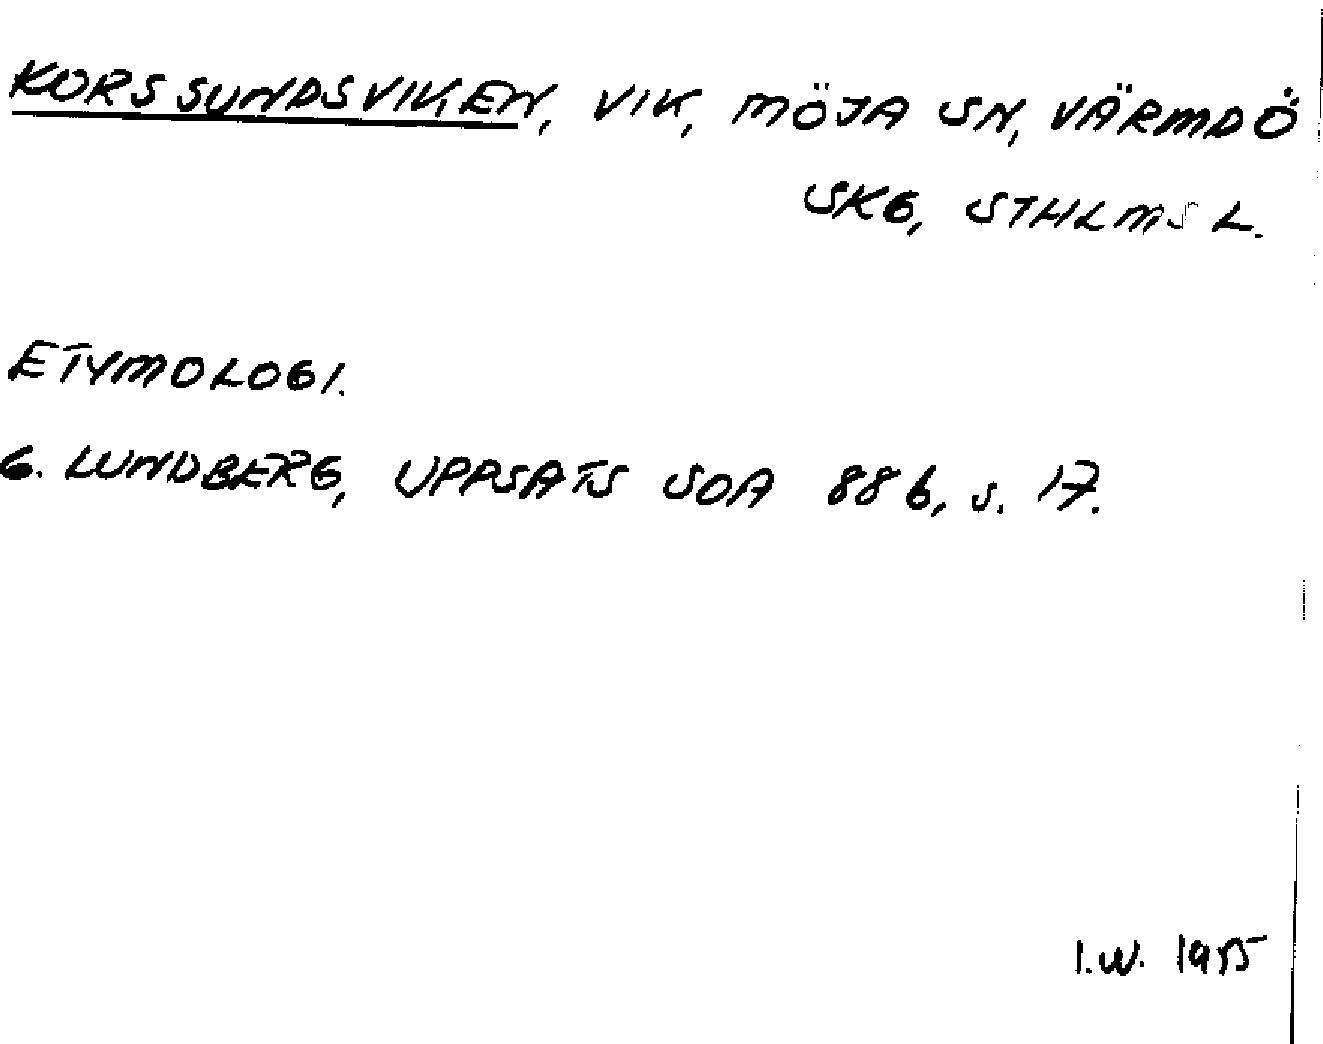 KORSSUNDSVIKEN, VIK, MÖJA SN, VÄRMDÖ
SKG, STHLMS L.
ETYMOLOGI.
G. LUNDBERG, UPPSATS SOA 886, S. 17.
I.W. 1955